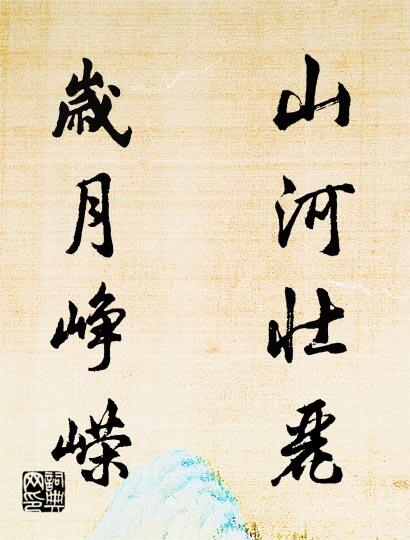 山河壮麗
歲月峥嵘
詞典网印